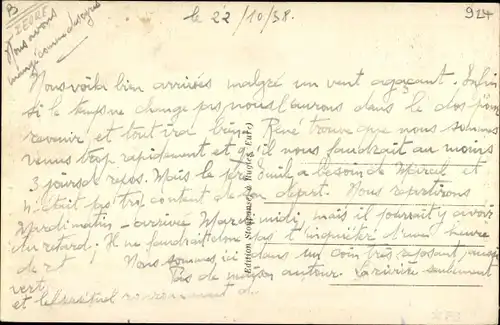 B
IEVRE
le 22/10/38.
924
Nous avons
mangé comme des
Nous voilà bien arrivées malgré un vent agaçant. Enfin
si le temps ne change pas nous l'aurons dans le dos pour
revenir et tout ira bien. René trouve que nous sommes
venus trop rapidement et qu'il nous faudrait au moins
3 jours de repos. Mais le père Emile a besoin de Marcel et
n'était pas trop content de son départ. Nous repartirons
Mardi matin - arrivée Mardi midi, mais il pourrait y avoir
du retard. Il ne faudrait donc pas t'inquiéter d'une heure
de rt Nous sommes ici dans un coin très reposant,
vert Pas de maison autour. La rivière seulement
et
Edition Stoupanse, à Bueil (Eure)